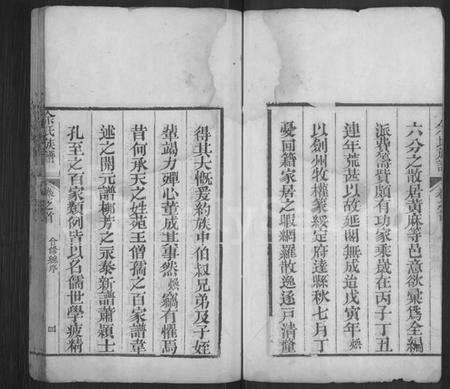 六分之散居黃麻等邑意欲彙爲全編
派費籌貲頗有功家乘歲在丙子丁丑
連年荒甚以故延閣無成造戊寅年
以劍州牧權篆綏定府達縣秋七月丁
憂回籍家居之暇網羅散逸逐戸清釐
得其大慨爰約族中伯叔兄弟及子姪
輩竭力殫心董成其事然 竊有懼焉
昔何承天之姓苑王僧孺之百家譜韋
述之開元譜柳芳之永泰新譜蕭穎士
孔至之百家類例皆以名儒世學疲精
余氏族譜
卷之首
合修總序
四